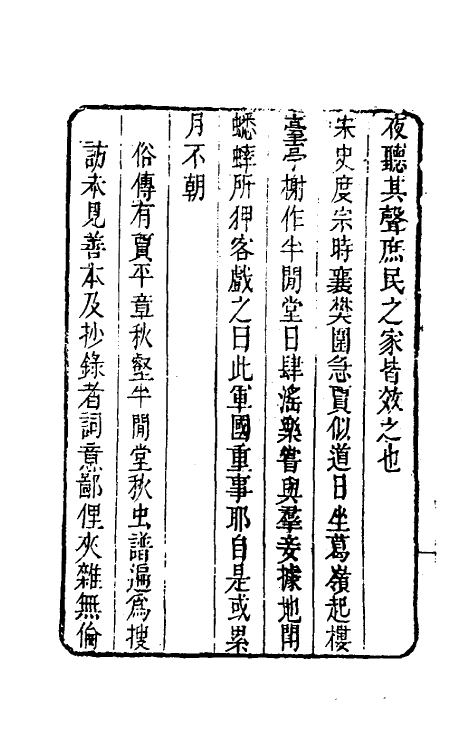 夜聽其聲庶民之家皆效之也
宋史度宗時襄樊圍急賈似道日坐葛嶺起樓
臺亭榭作半閒堂日肆滛樂甞與羣妾據地鬥
蟋蟀所狎客戲之曰此軍國重事耶自是或累
月不朝
俗傳有賈平章秋壑半閒堂秋虫譜遍為搜
訪未見善本及抄錄者詞意鄙俚夾雜無倫